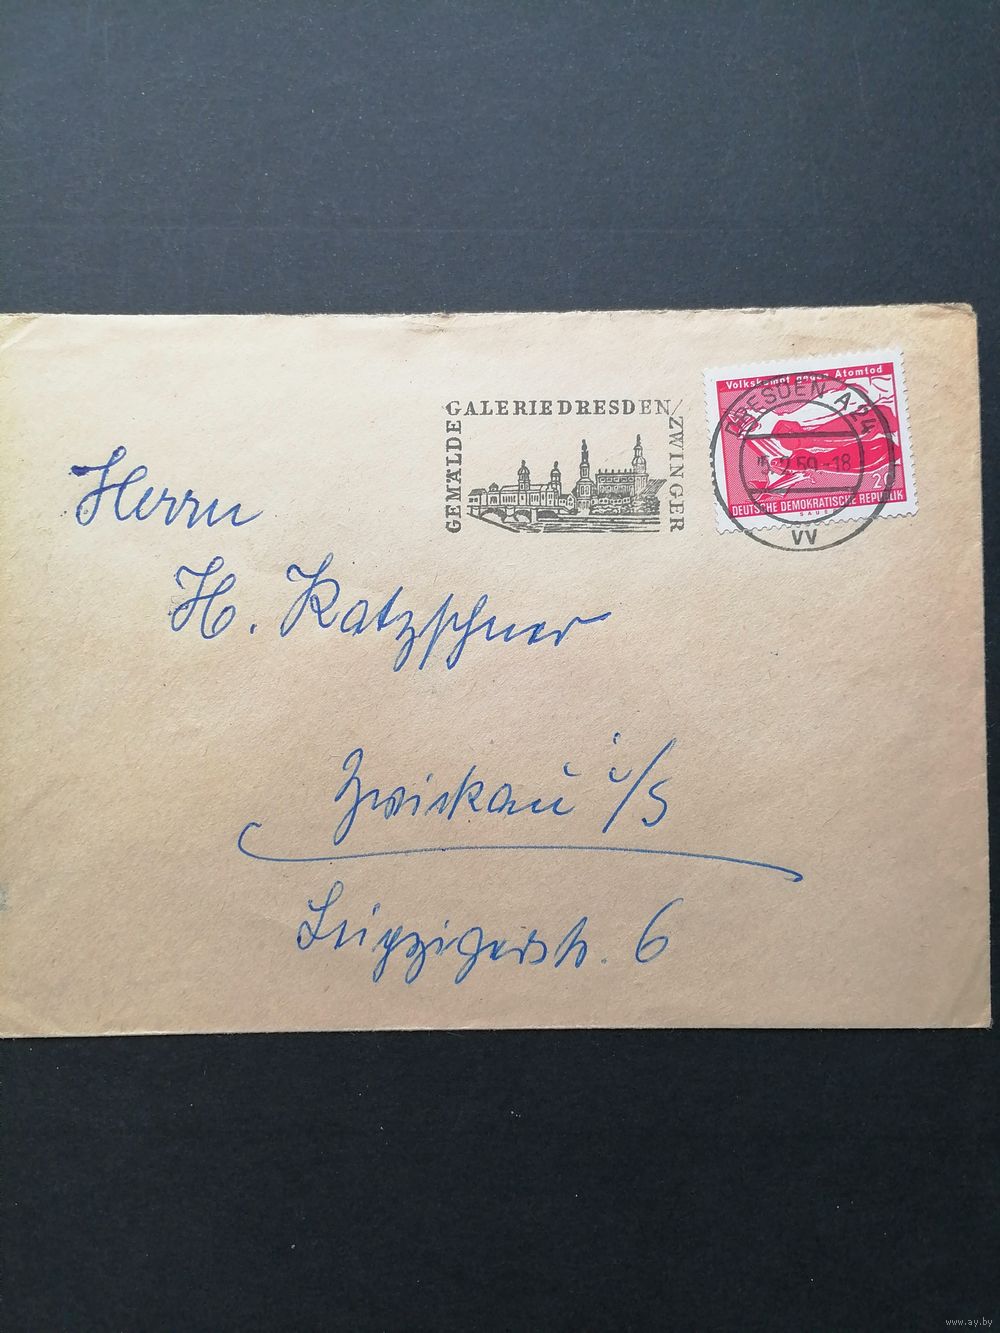 GEMÄLDE
GALERIE DRESDEN/
ZWINGER
Volkskampf gegen Atomtod
DRESDEN A 24
.2.59-18
20
DEUTSCHE DEMOKRATISCHE REPUBLIK
vv
Herrn
H. Katzschner
Zwickau i/S
Leipzigerstr. 6
www.ay.by